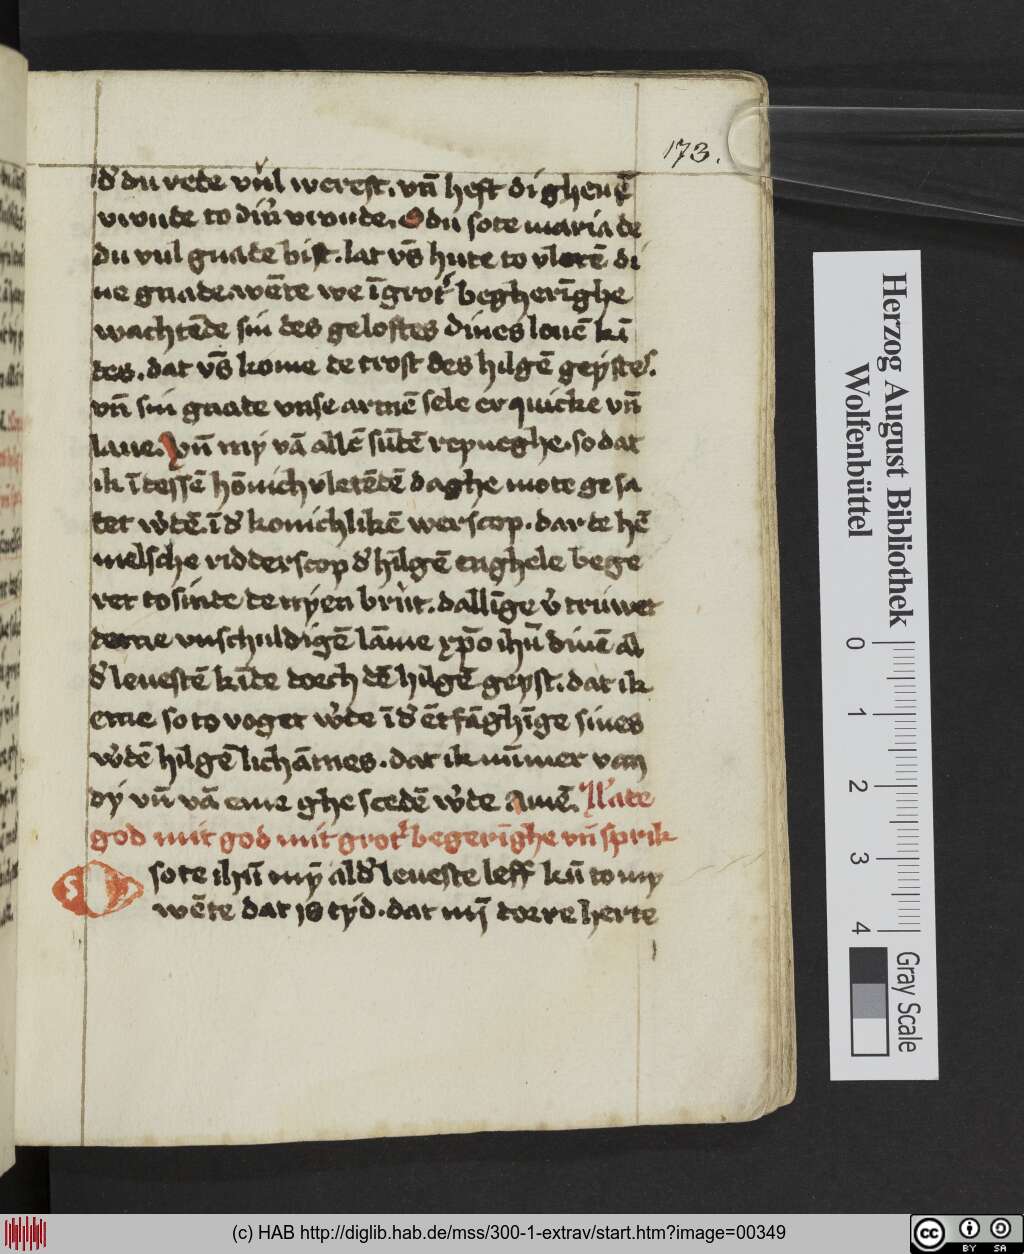 173.
đ du rede vul werest. vn̄ heft di gheuē
vrunde to din̄ vrunde. O du sote maria de
du vul gnade bist. lat vs̄ hute to vletē di
ne gnade. wēte we ī grot' begherīghe
wachtēde sin des gelostes dines leuē kī
des. dat vs̄ kome de trost des hilgē geystes.
vn̄ sin gnade vnse armē sele erquicke vn̄
laue. Vn̄ my vā allē sūdē reyneghe. so dat
ik ī dessē hōnich vletēdē daghe mote gesa
det w'dē. ī đ konichlikē werscop. dar de hē
melsche ridderscop đ hilgē enghele bege
ret to sinde de nyen brut. dallīge v' truwet
deme vnschuldigē lāme xp̄o ih̄u dinē al
đ leuestē kīde dorch dē hilgē geyst. dat ik
eme so to voget w'de ī đ ētfāghīge sines
w'dē hilgē lichāmes. dat ik nūmer van
dy vn̄ vā eme ghescedē w'de Amē. Nate
god mit god mit grot' begerīghe vn̄ sprik
O sote ih̄u my alđ leueste leff kū to my
wēte dat is tyd. dat mij dorre herte
Herzog August Bibliothek
Wolfenbüttel
0 1 2 3 4
Gray Scale
(c) HAB http://diglib.hab.de/mss/300-1-extrav/start.htm?image=00349
cc BY SA